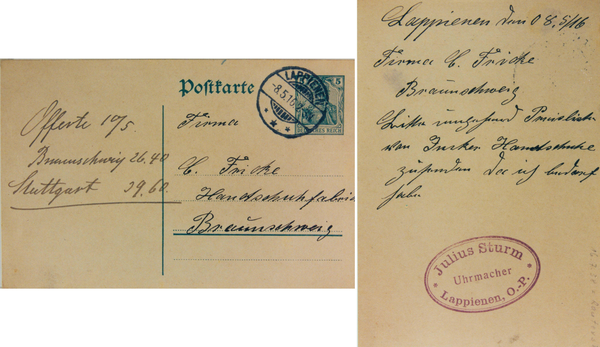 Postkarte
5
LAPPIENEN
8.5.16
DEUTSCHES REICH
Offerte 10/5.
Braunschweig 26.40
Stuttgart 29.60
Firma
C. Fricke
Handschuhfabrik
Braunschweig
Lappienen den 08.5/16
Firma C. Fricke
Braunschweig
Bitte umgehend Preisliste
von Handschuhe
zusenden da ich bedarf
habe
Julius Sturm
Uhrmacher
Lappienen, O.-P.